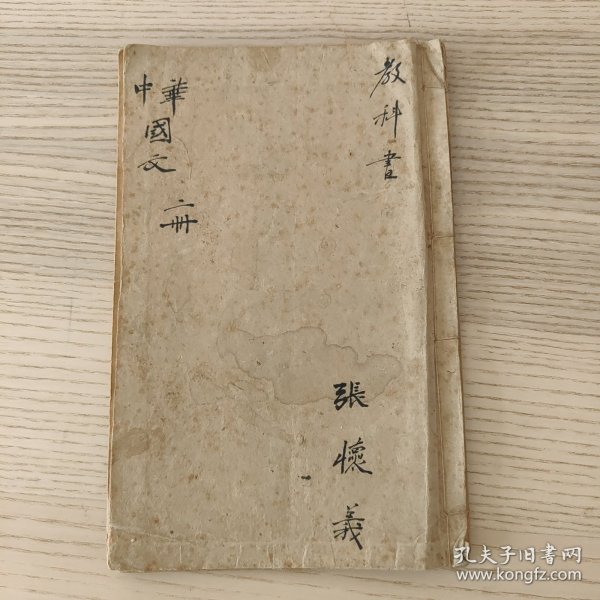 教科書
張懷義
中華國文
二冊
孔夫子旧書网
www.kongfz.com